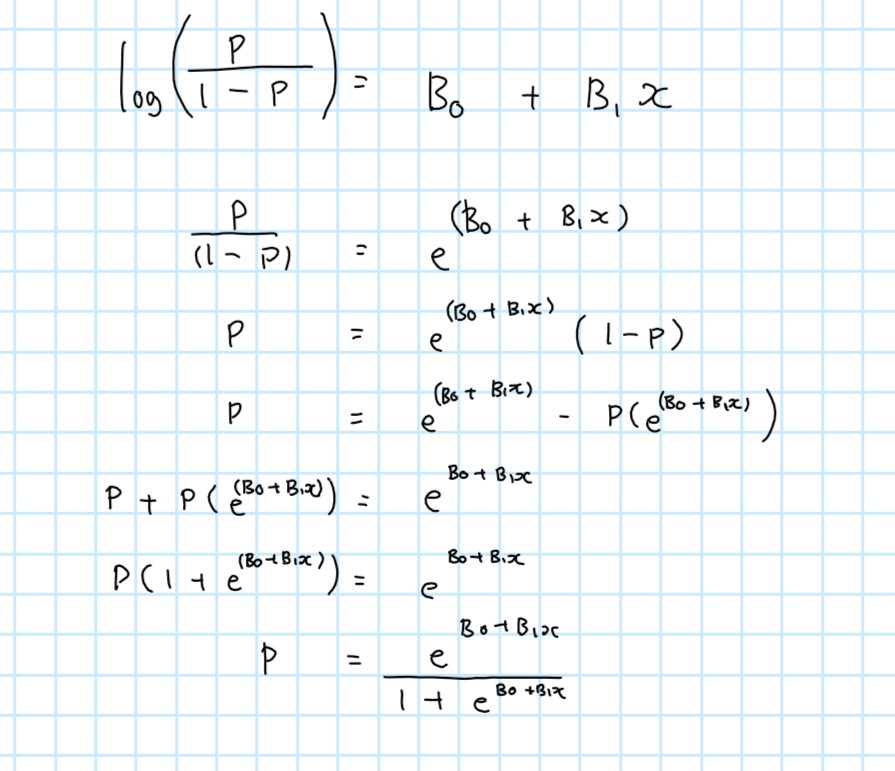 log(P/(1 - P)) = B₀ + B₁x
P/(1 - P) = e^(B₀ + B₁x)
P = e^(B₀ + B₁x) (1 - P)
P = e^(B₀ + B₁x) - P(e^(B₀ + B₁x))
P + P(e^(B₀ + B₁x)) = e^B₀ + B₁x
P(1 + e^(B₀ + B₁x)) = e^B₀ + B₁x
P = e^B₀ + B₁x / 1 + e^B₀ + B₁x